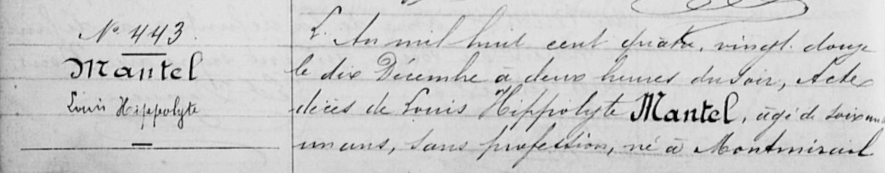 N° 443.
Mantel
Louis Hippolyte
L'An mil huit cent quatre vingt douze
le dix Décembre à deux heures du soir, Acte
décès de Louis Hippolyte Mantel, âgé de soixante
un ans, sans profession, né à Montmirail